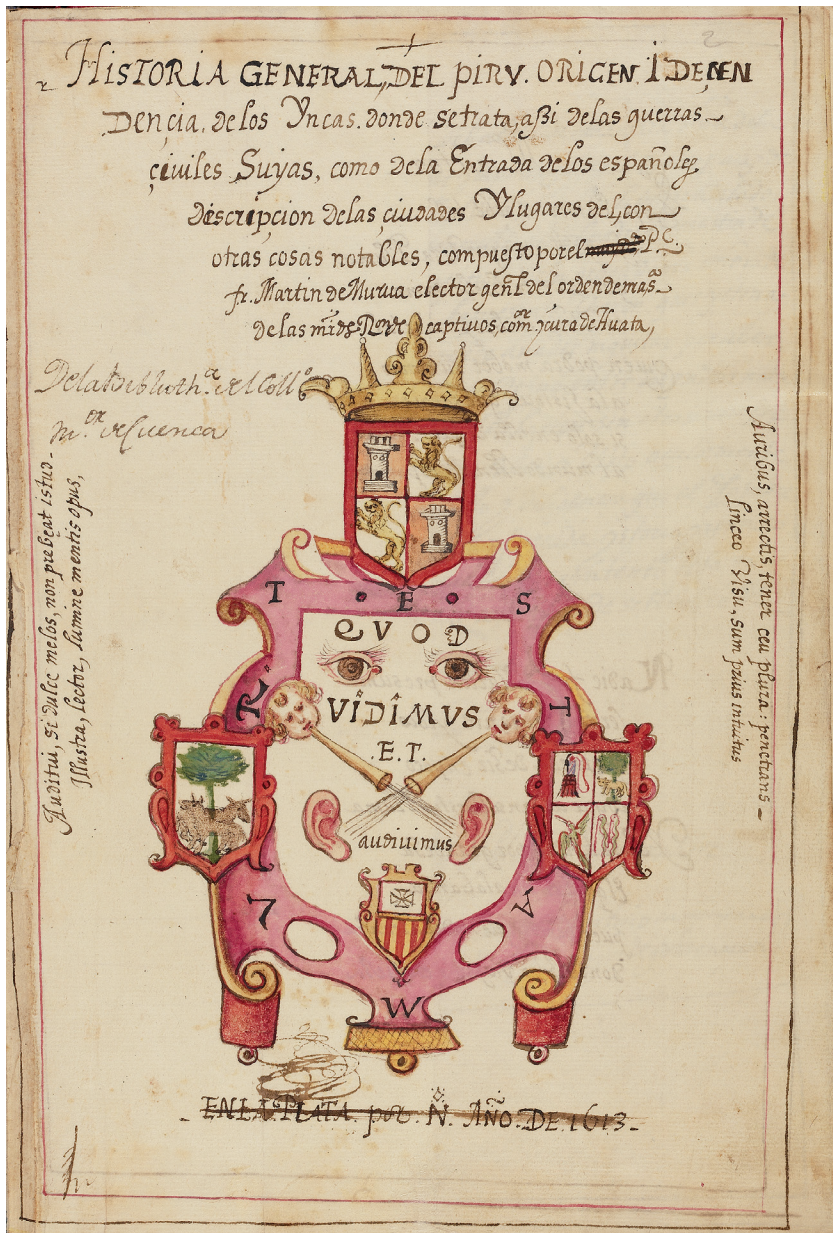 HISTORIA GENERAL, DEL PIRV. ORIGEN. I DEÇEN
DENçia. de los Yncas. donde se trata, assi de las guerras.
çiuiles Suyas, como de la Entrada de los españoles,
descripçion de las çiudades Y lugares del, con
otras cosas notables, compuesto por el P.e.
fr. Martin de Murua elector gen.l del orden de n.a s.a
de las m.rds. Red.e captiuos, com.or y cura de Huata,
De la Biblioth.a del Coll.o
m.or de Cuenca
Auditui, si dulce melos, non prebeat istud.
Illustra, lector, lumine mentis opus,
Auribus, arrectis, tener ceu plura: penetrans
linceo Visu, sum prius intuitus
T E S
QVOD
R.
VIDIMVS
T
.E.T.
audiuimus
L
A
W
EN LA. PLATA. por. N. AÑO. DE. 1613.
2